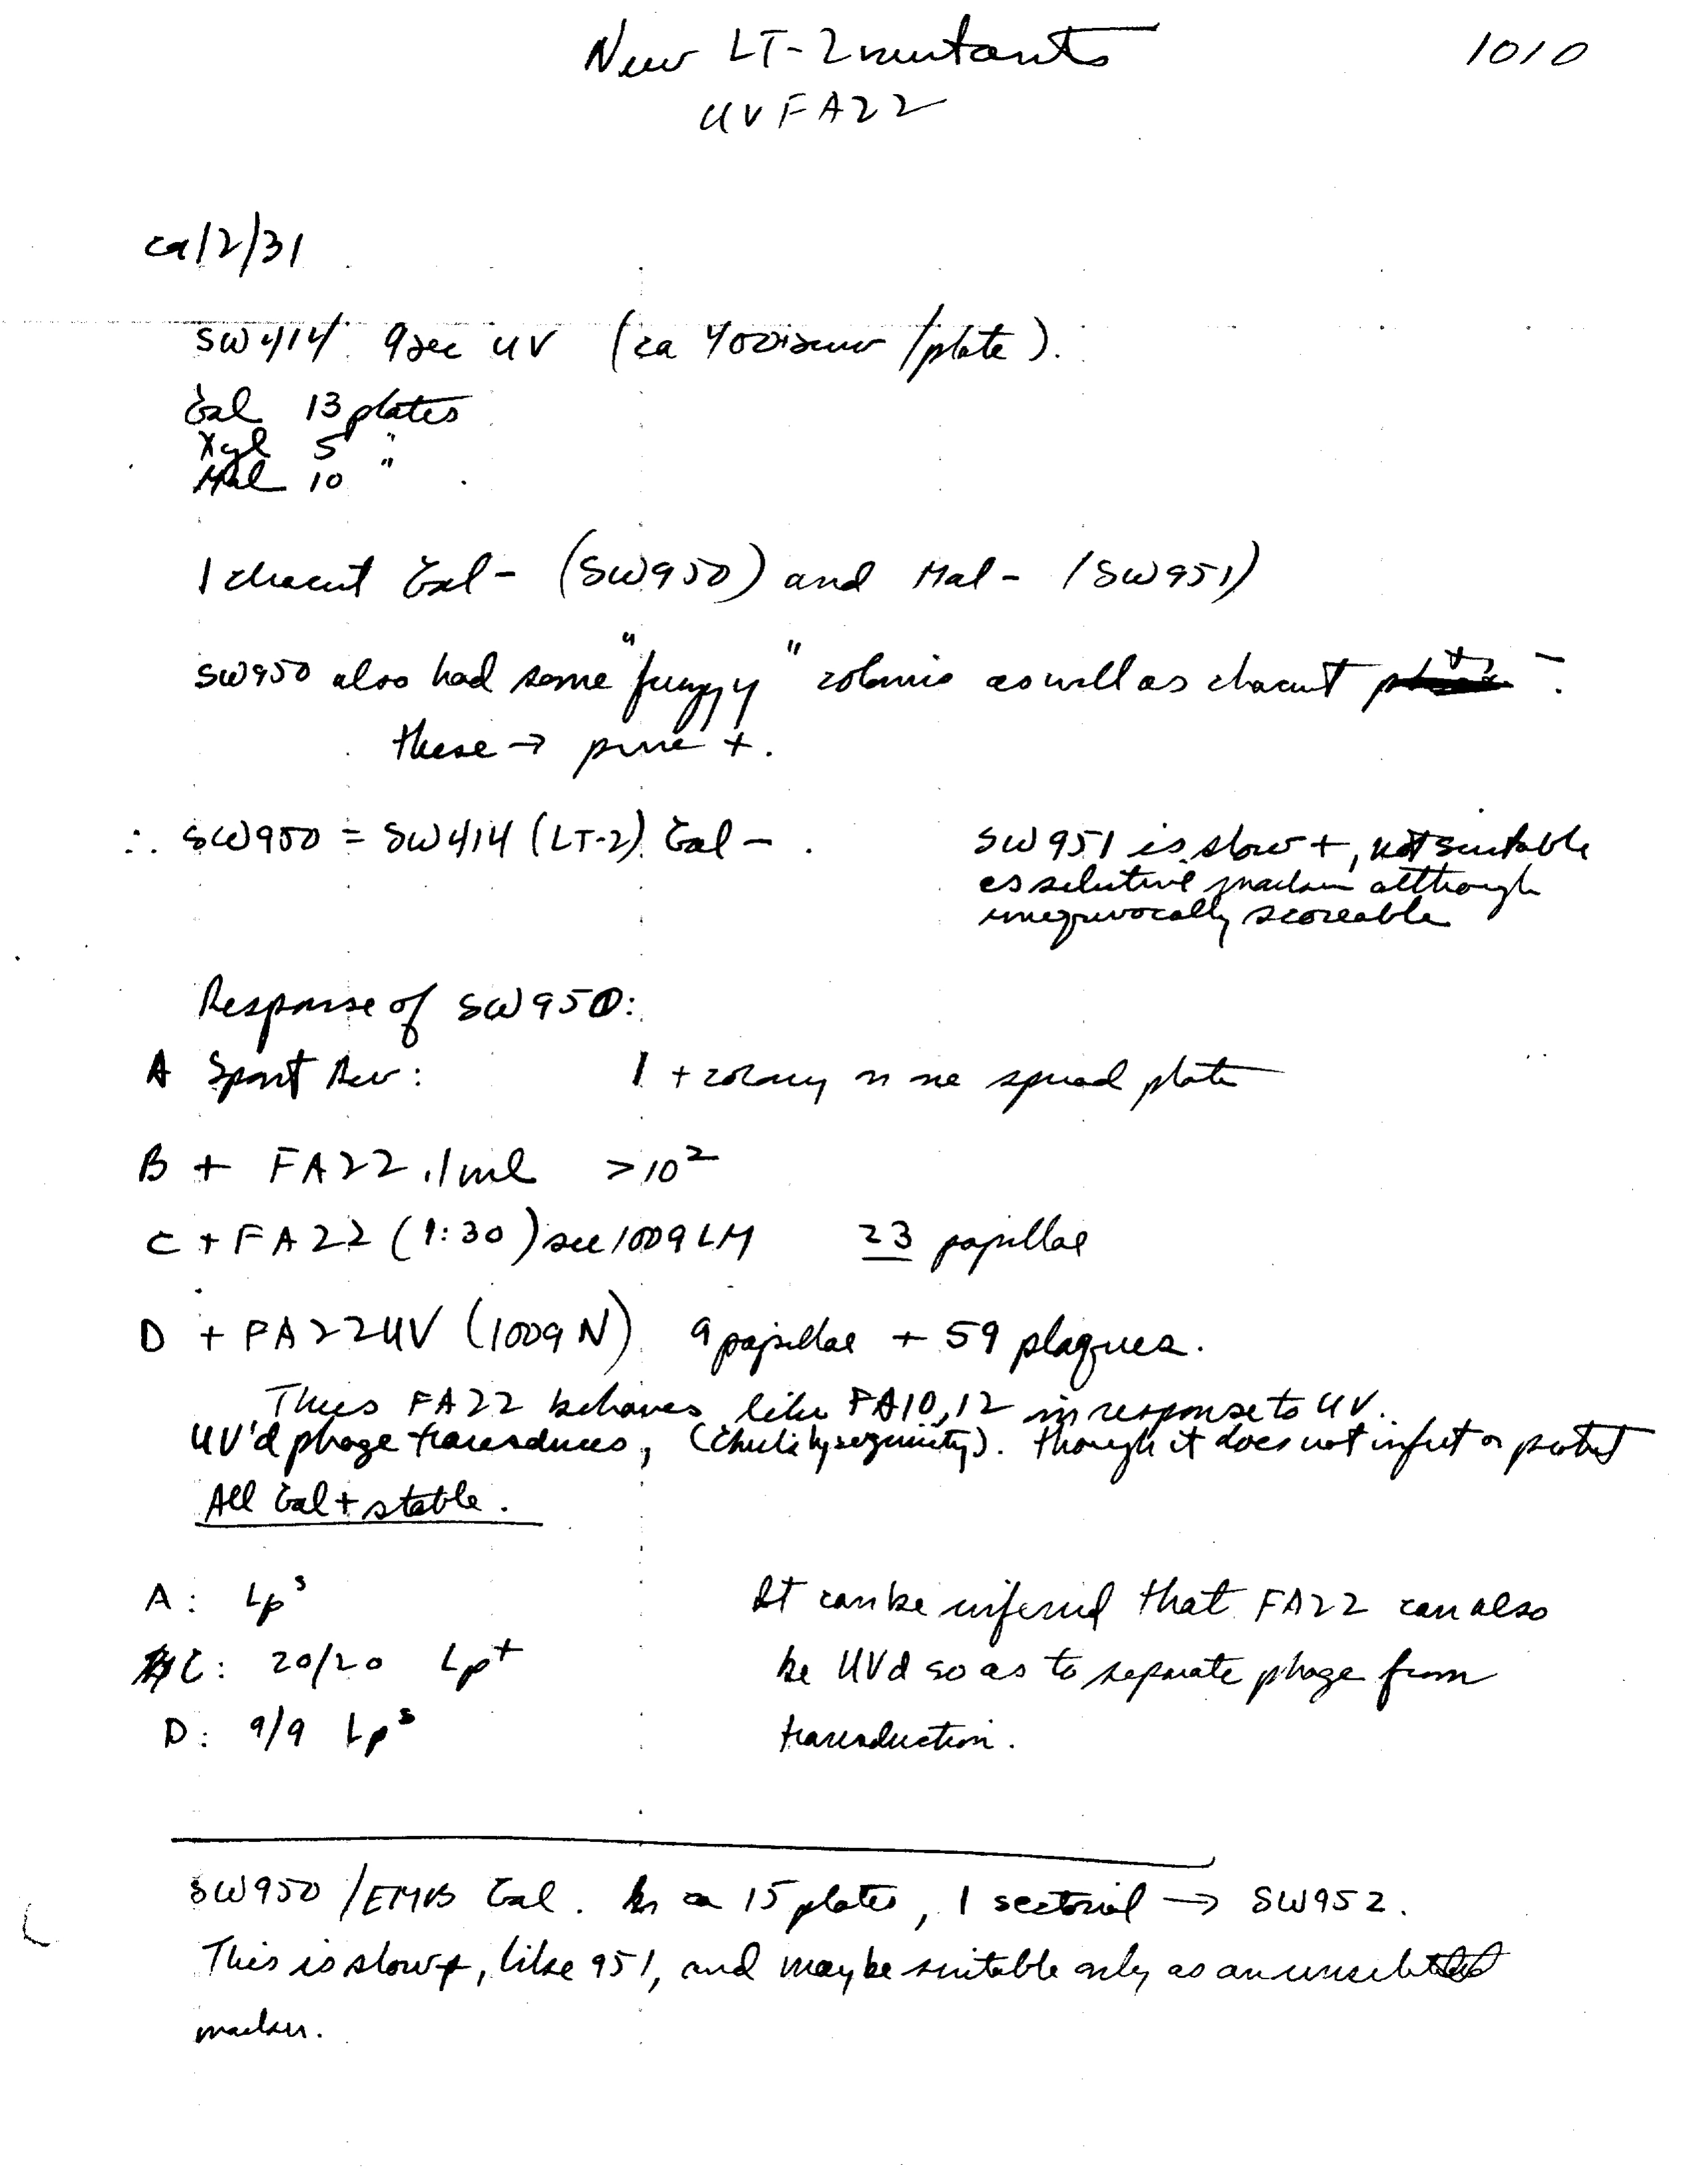 New LT-2 mutants
1010
UVFA22
ca 12/31
SW414 9sec UV (ca 400 /plate).
Gal 13 plates
Xyl 5 "
Mal 10 "
1 clearcut Gal- (SW950) and Mal- (SW951)
SW950 also had some "fuzzy" colonies as well as clearcut -.
these → pure +.
∴ SW950 = SW414 (LT-2) Gal - .
SW951 is slow +, not suitable
as selective marker although
unequivocally scoreable
Response of SW950:
A Spont Rev: 1 + colony on one spread plate
B + FA22 .1ml >10²
C + FA22 (1:30) see 1009LM 23 papillae
D + FA22UV (1009N) 9 papillae + 59 plaques.
Thus FA22 behaves like FA10,12 in response to UV.
UV'd phage transduces, (check lysogenicity). though it does not infect or protect
All Gal+ stable.
A: Lpˢ
C: 20/20 Lp⁺
D: 9/9 Lpˢ
It can be inferred that FA22 can also
be UVd so as to separate phage from
transduction.
SW950 /EMB Gal. In ca 15 plates, 1 sectorial → SW952.
This is slow+, like 951, and may be suitable only as an unselected
marker.